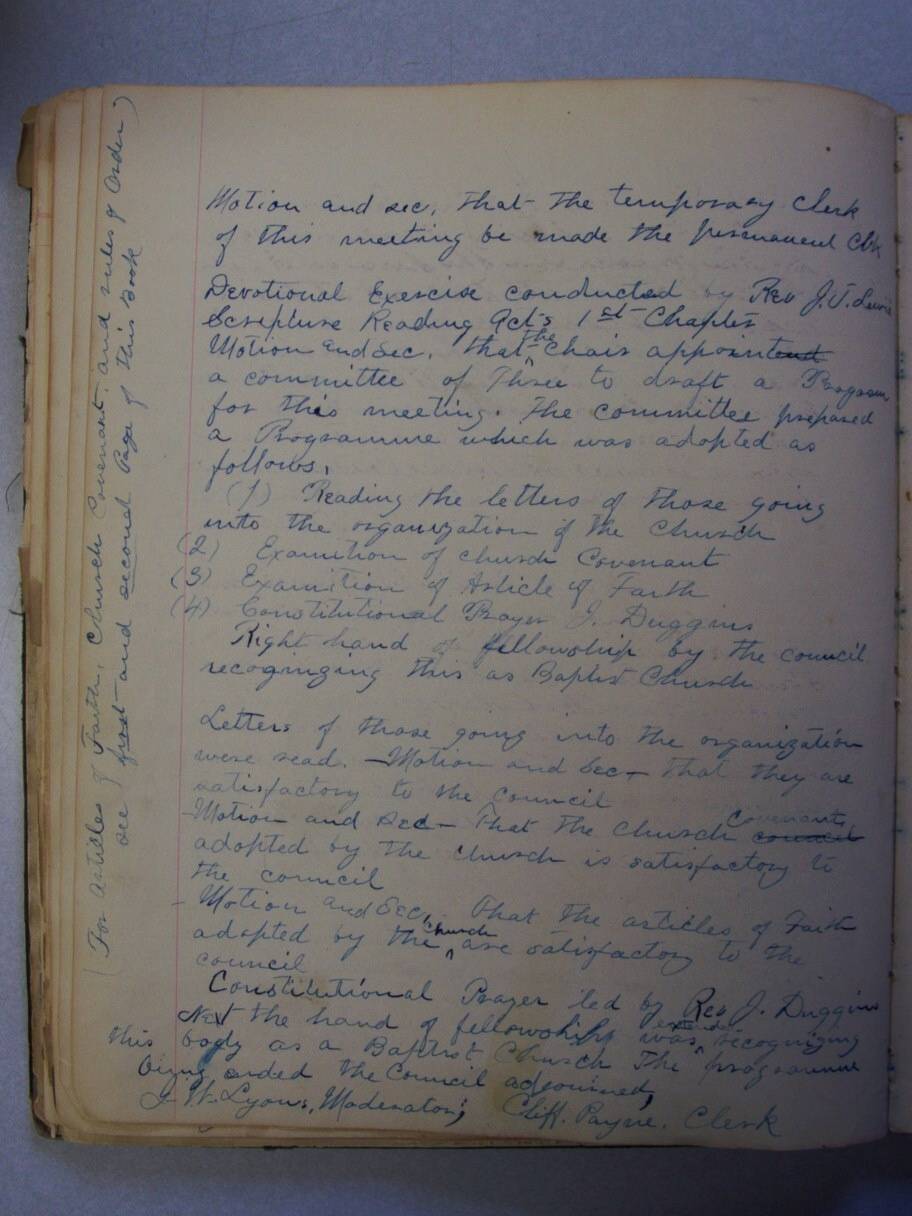 Motion and sec, that the temporary Clerk
of this meeting be made the permanent Clk
Devotional Exercise conducted by Rev J.T. Lewis
Scripture Reading Act's 1st Chapter
Motion and Sec. that the Chair appointend
a committee of Three to draft a Program
for this meeting. The committee prepared
a Programme which was adopted as
follows,
(1) Reading the letters of those going
into the organization of the Church
(2) Examition of church Covenant
(3) Examition of Article of Faith
(4) Constitutional Prayer J. Duggins
Right hand of fellowship by the council
recoginizing this as Baptist Church
Letters of those going into the organization
were read. - Motion and Sec - that they are
satisfactory to the council
Motion and Sec - That the church Covenants council
adopted by the church is satisfactory to
the council
- Motion and Sec, that the articles of Faith
adopted by the church are satisfactory to the
council
Constitutional Prayer led by Rev J. Duggins
Next the hand of fellowship was extended recognizing
this body as a Baptist Church The programme
being ended the Council adjourned,
J. W. Lyons, Moderator; Cliff. Payne. Clerk
(For Articles of Faith, Church Covenant, and rules of Order)
see first and second Page of this Book